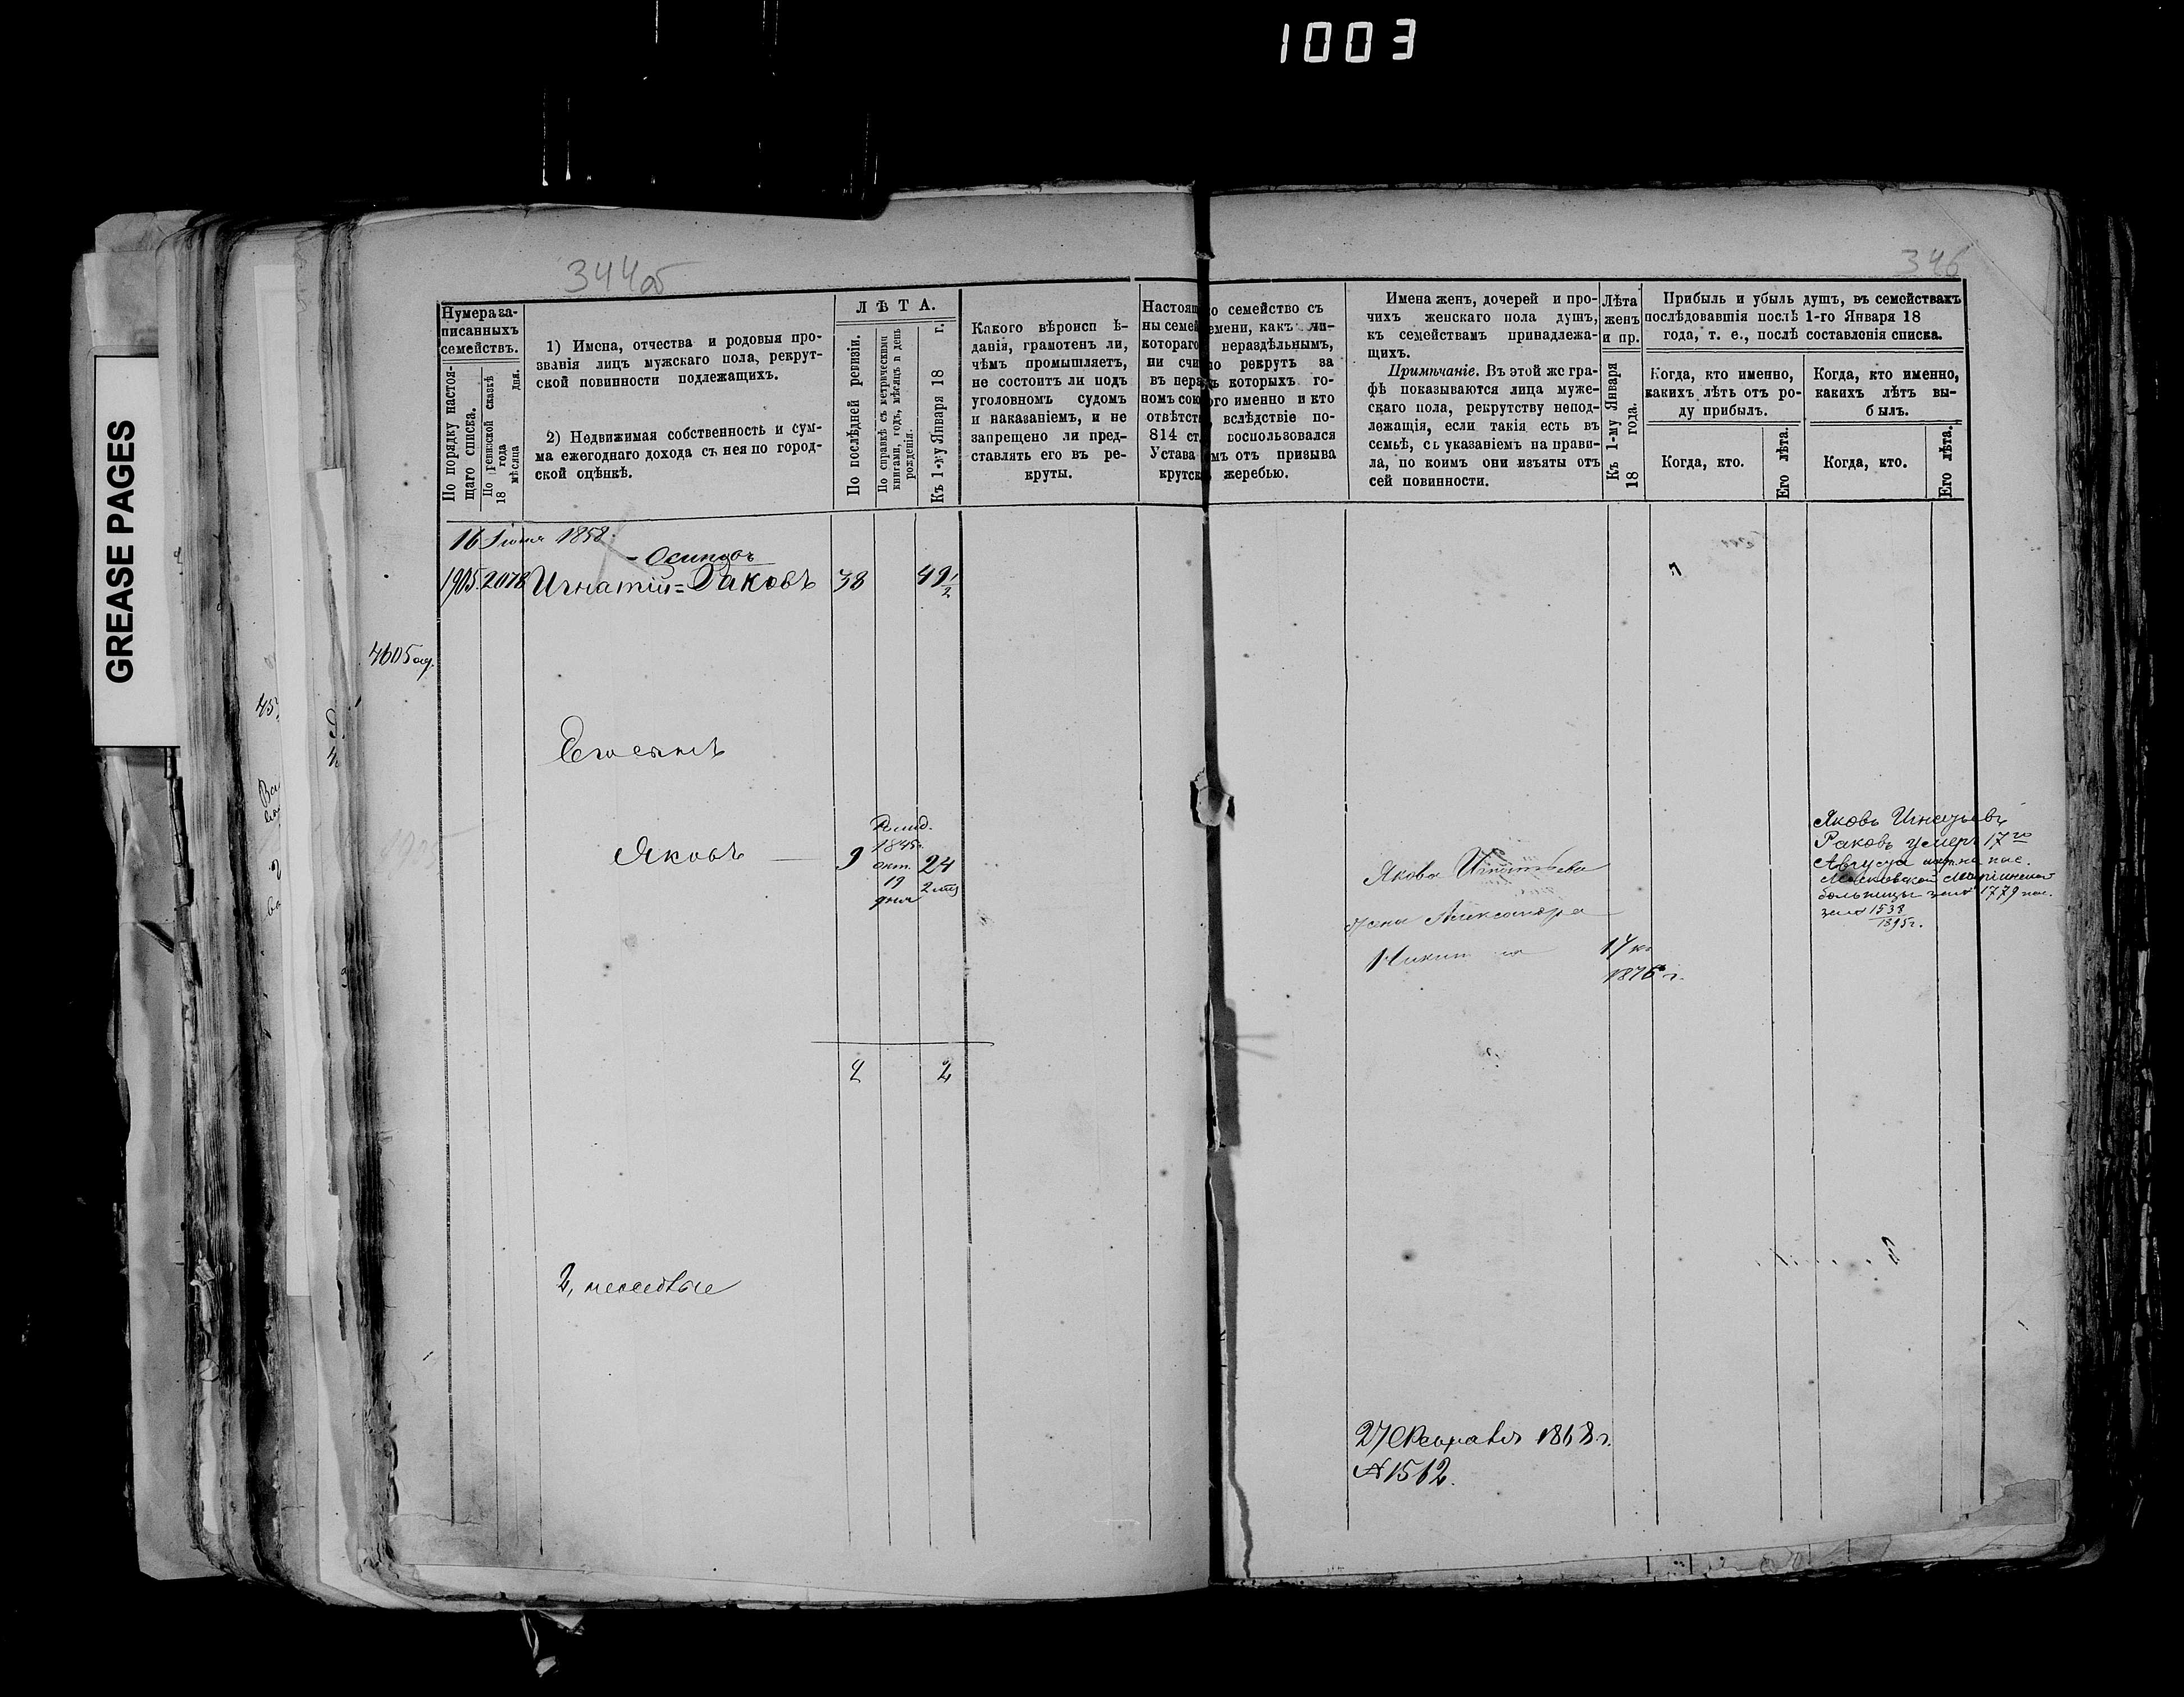 1003
GREASE PAGES
344об
346
Нумера за-
писанныхъ
семействъ.
По порядку настоя-
щаго списка.
По ревизской сказкѣ
18 года
мѣсяца дня.
1) Имена, отчества и родовыя про-
званія лицъ мужскаго пола, рекрут-
ской повинности подлежащихъ.
2) Недвижимая собственность и сум-
ма ежегоднаго дохода съ нея по город-
ской оцѣнкѣ.
ЛѢТА.
По послѣдней ревизіи.
По справкѣ съ метрическими
книгами, годъ, мѣсяцъ и день
рожденія.
Къ 1-му Января 18 г.
Какого вѣроисп ѣ-
данія, грамотенъ ли,
чѣмъ промышляетъ,
не состоитъ ли подъ
уголовномъ судомъ
и наказаніемъ, и не
запрещено ли пред-
ставлять его въ ре-
круты.
Настоящ о семейство съ
ны семей емени, какъ яв-
котораго нераздѣльнымъ,
ни счи о рекрутъ за
въ нера ъ которыхъ го-
номъ сою ого именно и кто
отвѣтст вслѣдствіе по-
814 ст. воспользовался
Устава мъ отъ призыва
крутск жеребью.
Имена женъ, дочерей и про-
чихъ женскаго пола душъ,
къ семействамъ принадлежа-
щихъ.
Примѣчаніе. Въ этой же гра-
фѣ показываются лица муже-
скаго пола, рекрутству непод-
лежащія, если такія есть въ
семьѣ, съ указаніемъ на прави-
ла, по коимъ они изъяты отъ
сей повинности.
Лѣта
женъ
и пр.
Къ 1-му Января
18 года.
Прибыль и убыль душъ, въ семействахъ
послѣдовавшія послѣ 1-го Января 18
года, т. е., послѣ составленія списка.
Когда, кто именно,
какихъ лѣтъ отъ ро-
ду прибылъ.
Когда, кто именно,
какихъ лѣтъ вы-
былъ.
Когда, кто.
Его лѣта.
Когда, кто.
Его лѣта.
16 Іюня 1858.
Осиповъ
1905. 2078 Игнатій = Раковъ 38 49 1/2
4605
Его сынъ
Яковъ 9
Рожд.
1845г.
окт.
19
дня
24
2
Якова Игнатьева
жена Александра
17
1876 г.
Яковъ Игнатьевъ
Раковъ умеръ 17го
Августа
Московской Маріинской
больницы за № 1779
за № 1538
1895г.
2 2
2,
27 Февраля 1868 г.
№ 1512.